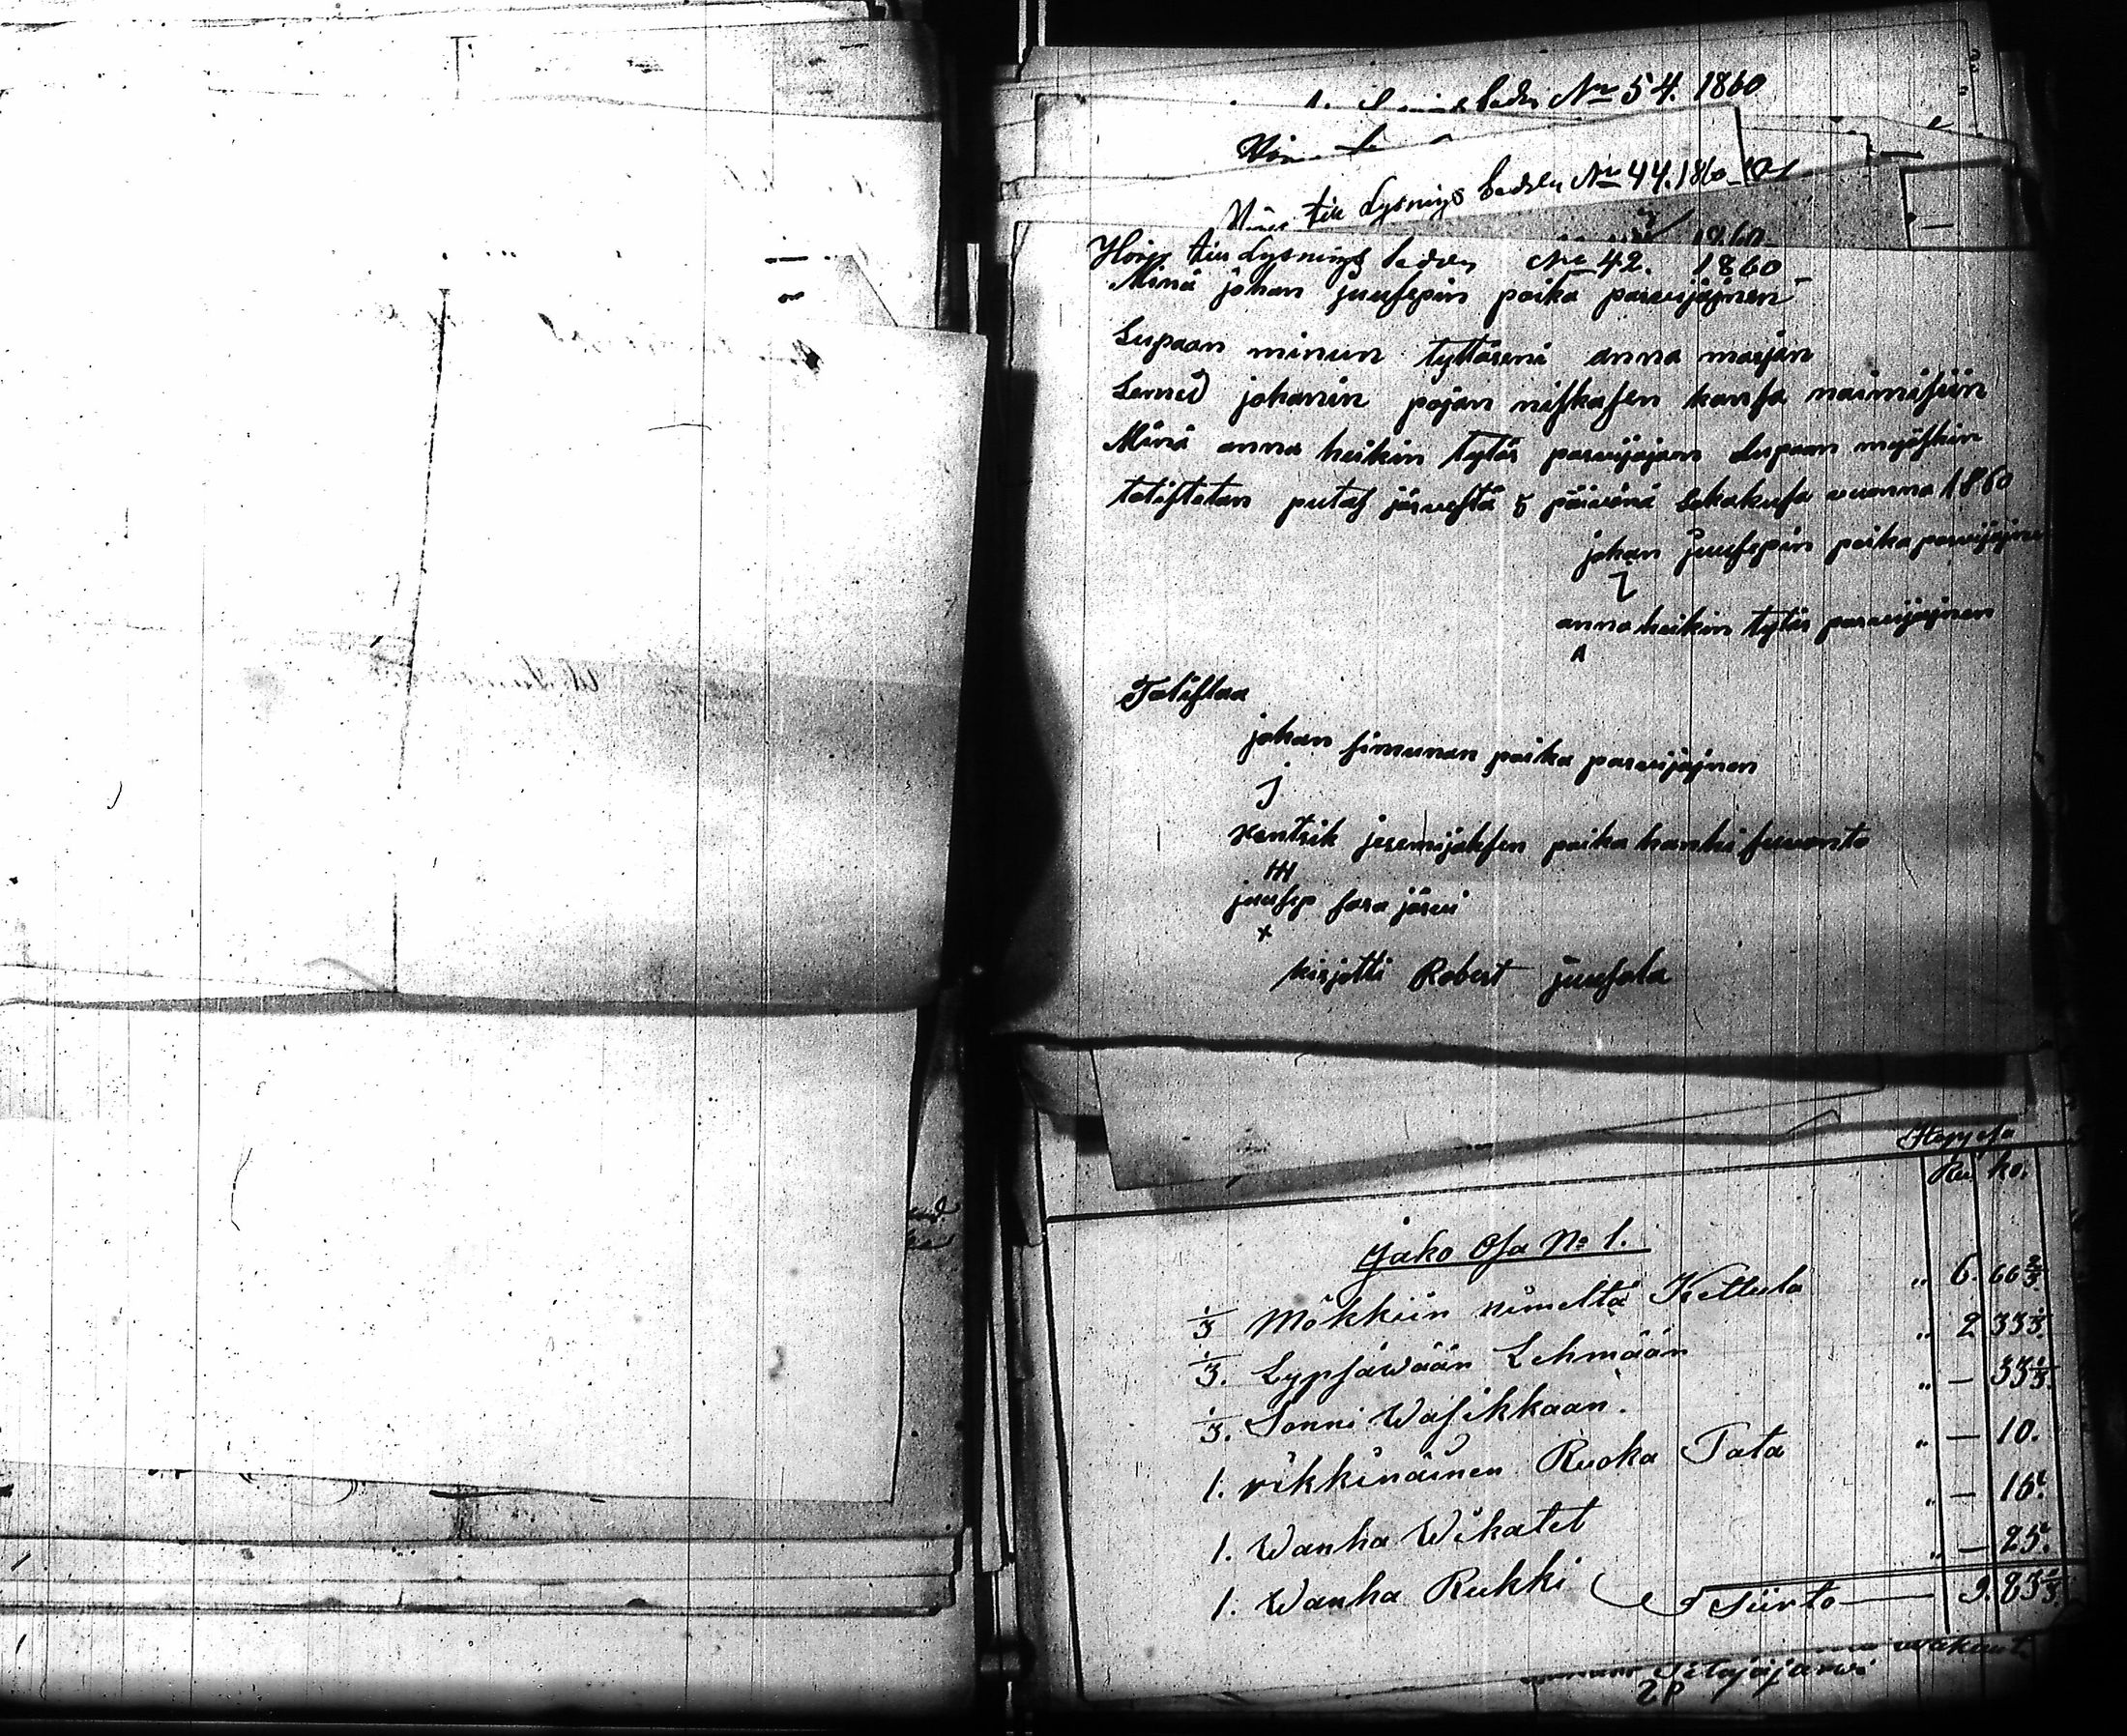 Sedeln No 54. 1860
till Lysnings Sedeln No 44. 1860
Hörer till Lysnings Sedeln No 42. 1860
Minä johan juusepin poika parvijajnen
Lupaan minun tyttäreni anna marjan
johanin pojan niskasen kansa naimiseen
Minä anna heikin tytär parvijajnen Lupaan myöskin
totistetan putas järvestä 5 päivänä Lokakusa vuonna 1860
johan juusepin poika parvijajnen
anna heikin tytär parvijajnen
A
Totistaa
johan simunan poika parvijajnen
J
Hentrik jeremijaksen poika hanhi suvanto
HH
juusep sara järvi
x
kirjotti Robert juusola
Hopyesa
Ru. ko.
Jako Osa No 1.
1/3 Mökkiin nimeltä Kettula " 6. 66 2/3
1/3. Lypsäwään Lehmään " 2 33 1/3
1/3. Sonni Wasikkaan. " — 33 1/3.
1. rikkinäinen Ruoka Pata " — 10.
1. Wanha Wikatet " — 16.
1. Wanha Rukki " — 25.
Siirto — 9. 83 1/3